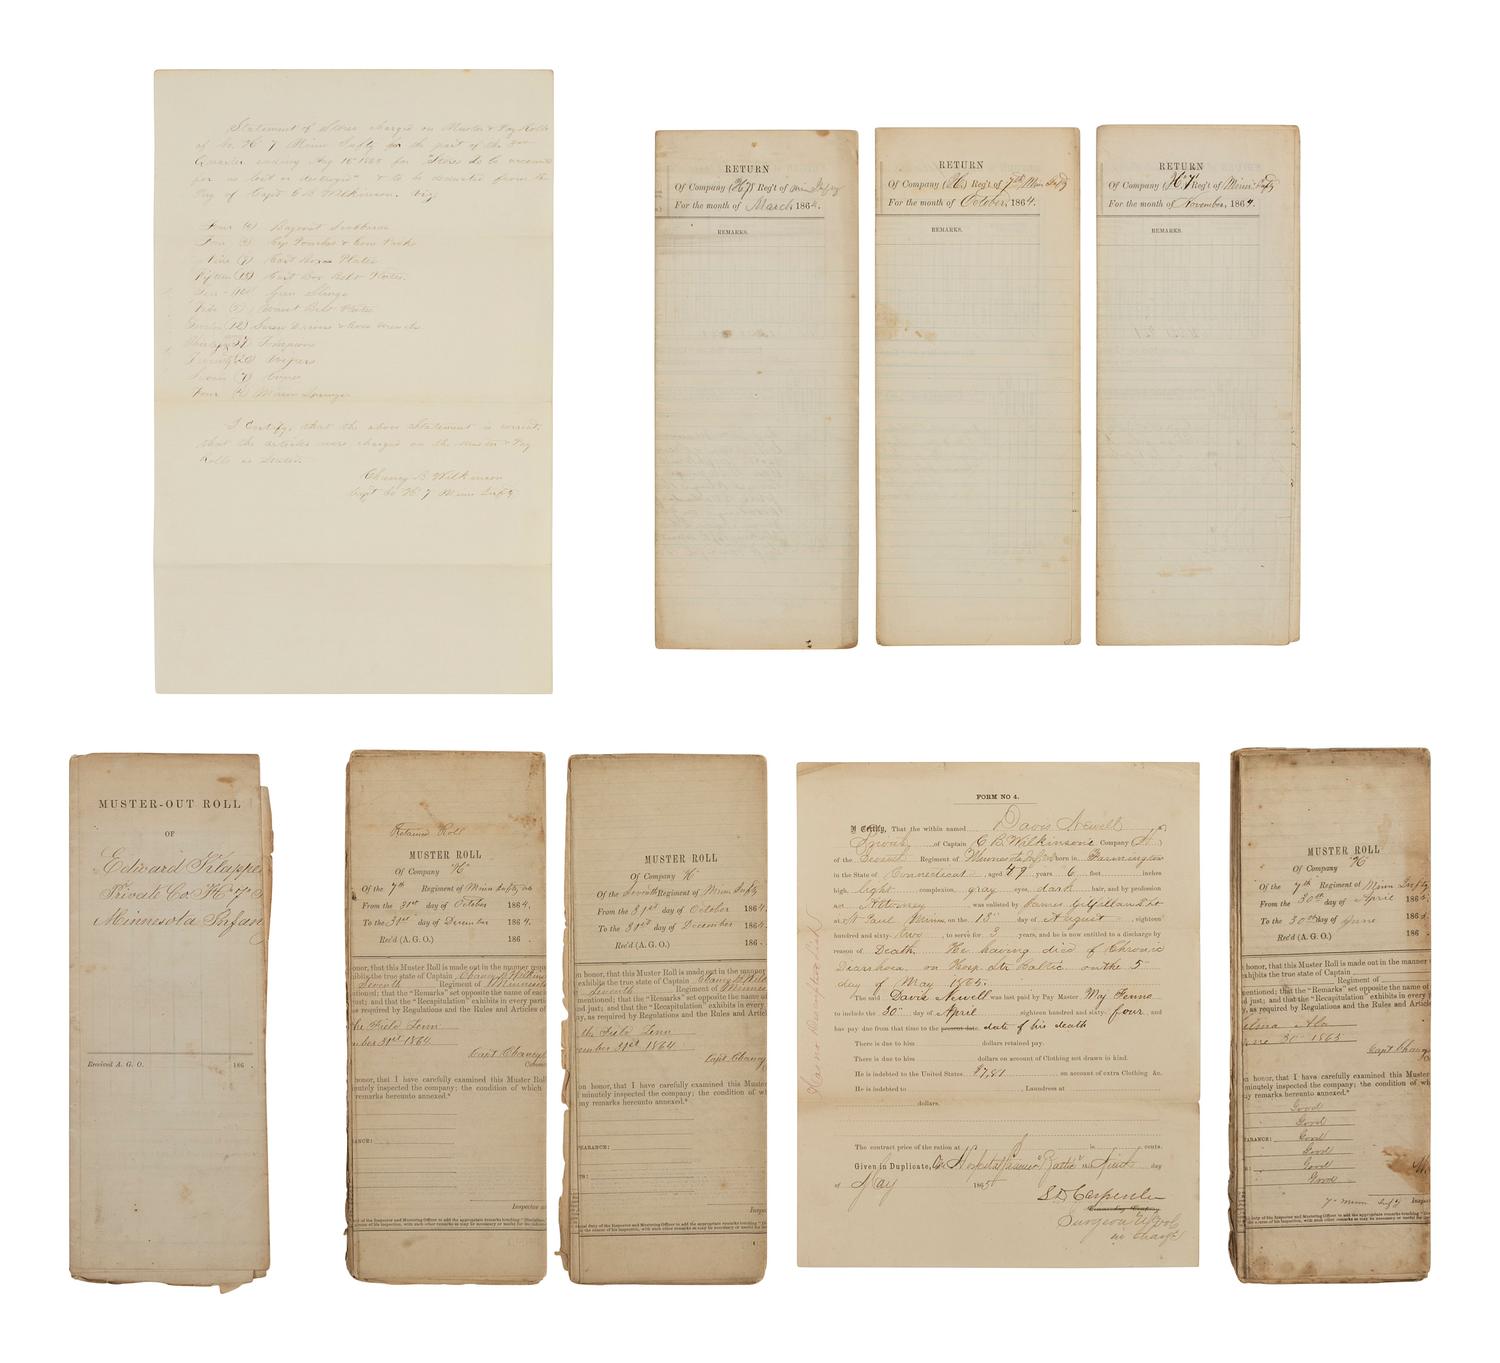 Statement of Stores charged on Muster & Pay Rolls
of Co. H 7 Minn Infty for the part of the 3rd
Quarter ending Aug 16 1865 for "Stores to be accounted
for as lost or destroyed" & to be deducted from the
Pay of Capt C B Wilkinson. viz,
Four (4) Bayonet Scabbards
Cap Pouches & Cone Picks
Nine (9) Cart Box Plates
Fifteen (15) Cart Box Belt Plates.
Gun Slings
Waist Belt Plates
(12) Screw Drivers & Cone Wrench
Tompions
Wipers
Seven (7) Cones
Four (4) Main Springs
I Certify, that the above Statement is correct,
that the articles were charged on the Muster & Pay
Rolls as Stated.
Chancy B Wilkinson
Capt Co H 7 Minn Infty
RETURN
Of Company (H 7) Reg't of Min Infty
For the month of March, 1864.
REMARKS.
RETURN
Of Company (H.) Reg't of 7th Min Infty
For the month of October, 1864.
REMARKS.
RETURN
Of Company (H. 7) Reg't of Minn. Infty
For the month of November, 1864.
REMARKS.
MUSTER-OUT ROLL
OF
Edward Klapper
Private Co. H 7
Minnesota Infan
Received A. G. O. 186 .
Retained Roll
MUSTER ROLL
Of Company "H"
Of the 7th Regiment of Minn Infty
From the 31st day of October 1864,
To the 31st day of December 1864.
Rec'd (A. G. O.) 186 .
honor, that this Muster Roll is made out in the manner
exhibits the true state of Captain Chancy B Wilkin
Seventh Regiment of Minnesota
mentioned; that the "Remarks" set opposite the name of each
just; and that the "Recapitulation" exhibits in every parti
as required by Regulations and the Rules and Articles of
the Field Tenn
mber 31st 1864
Capt Chancy
honor, that I have carefully examined this Muster Roll
minutely inspected the company; the condition of which
remarks hereunto annexed.*
Inspector
MUSTER ROLL
Of Company "H"
Of the Seventh Regiment of Minn Infty
From the 31st day of October 1864.
To the 31st day of December 1864.
Rec'd (A. G. O.) 186 .
n honor, that this Muster Roll is made out in the manner
exhibits the true state of Captain Chancy B Wilk
Seventh Regiment of Minnes
mentioned; that the "Remarks" set opposite the name of
just; and that the "Recapitulation" exhibits in every
y, as required by Regulations and the Rules and Articl
the Field Tenn
cember 31st 1864
Capt. Chancy
on honor, that I have carefully examined this Muster
minutely inspected the company; the condition of wh
my remarks hereunto annexed.*
FORM NO 4.
I Certify, That the within named Davis Newell, a
Private of Captain C B. Wilkinson's Company (H)
of the Seventh Regiment of Minnesota Infty born in Farmington
in the State of Connecticut, aged 49 years 6 feet inches
high, light complexion, gray eyes, dark hair, and by profession
an Attorney was enlisted by James Gilfillan Lt
at St Paul Minn, on the 13 day of August, eighteen
hundred and sixty- two, to serve for 3 years, and he is now entitled to a discharge by
reason of Death. He having died of Chronic
Diarrhoea. on Hosp. Str Baltic on the 5
day of May 1865.
The said Davis Newell was last paid by Pay Master Maj Fenno
to include the 30 day of April eighteen hundred and sixty- four, and
has pay due from that time to the present date. date of his death
There is due to him dollars retained pay.
There is due to him dollars on account of Clothing not drawn in kind.
He is indebted to the United States $7.81 on account of extra Clothing &c.
He is indebted to , Laundress at
dollars.
The contract price of the ration at is cents.
Given in Duplicate, On Hospital Steamer "Baltic" this Ninth day
of May 1865
S D Carpenter
Commanding Company
Surgeon U S Vols
in Charge
Has no Descriptive List
MUSTER ROLL
Of Company "H"
Of the 7th Regiment of Minn Infty
From the 30th day of April 1865.
To the 30th day of June 1865.
Rec'd (A. G. O.) 186 .
honor, that this Muster Roll is made out in the manner
exhibits the true state of Captain
Regiment of
mentioned; that the "Remarks" set opposite the name of
d just; and that the "Recapitulation" exhibits in every
y, as required by Regulations and the Rules and Article
Selma Ala
June 30 1865
Capt Chancy
honor, that I have carefully examined this Muster
minutely inspected the company; the condition of wh
my remarks hereunto annexed.*
Good
Good
Good
Good
Good
Good
7" Minn Infy